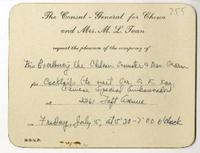 255
The Consul-General for China
and Mrs. M. L. Tuan
request the pleasure of the company of
His Excellency the Chinese Minister & Mrs.
for Cocktails to meet
Chinese Special Ambassador
at 2261 Taft Avenue
Friday, July 5, at 5:30-7:00 o'clock
R.S.V.P.